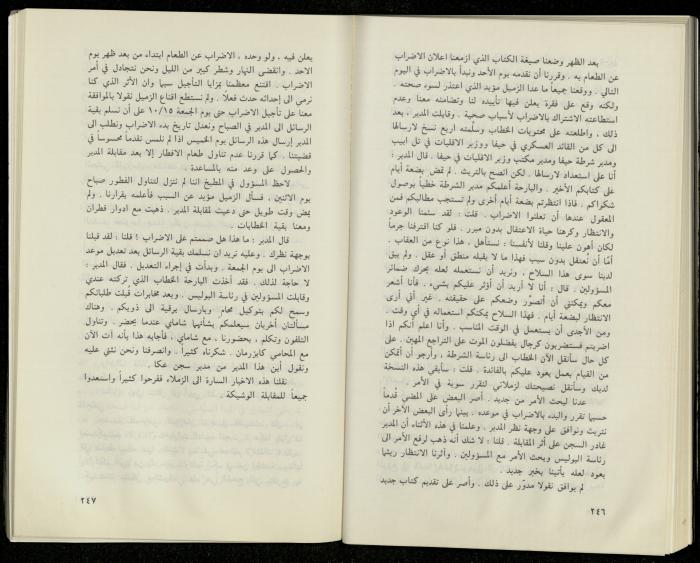 بعد الظهر وضعنا صيغة الكتاب الذي ازمعنا اعلان الاضراب
عن الطعام به . وقررنا أن نقدمه يوم الأحد ونبدأ بالاضراب في اليوم
التالي . ووقعنا جميعاً ما عدا الزميل مؤيد الذي اعتذر لسوء صحته .
ولكنه وقع على فقرة يعلن فيها تأييده لنا وتضامنه معنا وعدم
استطاعته الاشتراك بالاضراب لأسباب صحية . وقابلت المدير ، بعد
ذلك ، واطلعته على محتويات الخطاب وسلّمته اربع نسخ لارسالها
الى كل من القائد العسكري في حيفا ووزير الاقليات في تل ابيب
ومدير شرطة حيفا ومدير مكتب وزير الاقليات في حيفا . قال المدير :
أنا على استعداد لارسالها . لكن انصح بالتريث . لم تمض بضعة أيام
على كتابكم الأخير . والبارحة أعلمكم مدير الشرطة خطياً بوصول
شكواكم . فاذا انتظرتم بضعة أيام أخرى ولم تستجب مطالبكم فمن
المعقول عندها أن تعلنوا الاضراب . قلت : لقد سئمنا الوعود
والانتظار وكرهنا حياة الاعتقال بدون مبرر . فلو كنا اقترفنا جرماً
لكان أهون علينا وقلنا لأنفسنا : نستأهل ، هذا نوع من العقاب .
أمّا أن نُعتقل بدون سبب فهذا ما لا يقبله منطق أو عقل . ولم يبق
لدينا سوى هذا السلاح ، ونريد أن نستعمله لعله يحرك ضمائر
المسؤولين . قال : أنا لا أريد أن أؤثر عليكم بشيء . فأنا أشعر
معكم ويمكنني أن أتصوّر وضعكم على حقيقته . غير أني أرى
الانتظار لبضعة أيام . فهذا السلاح يمكنكم استعماله في أي وقت .
ومن الأجدى أن يستعمل في الوقت المناسب . وأنا اعلم أنكم اذا
اضربتم فستضربون كرجال يفضلون الموت على التراجع المهين . على
كل حال سأنقل الآن الخطاب الى رئاسة الشرطة ، وأرجو أن أتمكن
من القيام بعمل يعود عليكم بالفائدة . قلت : سأبقي هذه النسخة
لديك وسأنقل نصيحتك لزملائي لنقرر سوية في الأمر .
عدنا لبحث الأمر من جديد . أصر البعض على المضي قُدماً
حسبما تقرر والبدء بالاضراب في موعده . بينما رأى البعض الآخر أن
نتريث ونوافق على وجهة نظر المدير . وعلمنا في هذه الأثناء أن المدير
غادر السجن على أثر المقابلة . قلنا : لا شك أنه ذهب لرفع الأمر الى
رئاسة البوليس وبحث الأمر مع المسؤولين . وآثرنا الانتظار ريثما
يعود لعله يأتينا بخبر جديد .
لم يوافق نقولا مدوّر على ذلك . وأصر على تقديم كتاب جديد
٢٤٦
يعلن فيه ، ولو وحده ، الاضراب عن الطعام ابتداء من بعد ظهر يوم
الاحد . وانقضى النهار وشطر كبير من الليل ونحن نتجادل في أمر
الاضراب . اقتنع معظمنا بمزايا التأجيل سيما وان الأثر الذي كنا
نرمى الى إحداثه حدث فعلًا . ولم نستطع اقناع الزميل نقولا بالموافقة
معنا على تأجيل الاضراب حتى يوم الجمعة ١٠/١٥ على أن نسلم بقية
الرسائل الى المدير في الصباح ونعدل تاريخ بدء الاضراب ونطلب الى
المدير إرسال هذه الرسائل يوم الخميس اذا لم نلمس تقدماً محسوساً في
قضيتنا . كما قررنا عدم تناول طعام الافطار إلا بعد مقابلة المدير
والحصول على وعد منه بالمساعدة .
لاحظ المسؤول في المطبخ اننا لم ننزل لتناول الفطور صباح
يوم الاثنين . فسأل الزميل مؤيد عن السبب فأعلمه بقرارنا . ولم
يمض وقت طويل حتى دعيت لمقابلة المدير . ذهبت مع ادوار قطران
ومعنا بقية الخطابات .
قال المدير : ما هذا هل صممتم على الاضراب ؟ قلنا : لقد قبلنا
بوجهة نظرك . وعليه نريد ان نسلمك بقية الرسائل بعد تعديل موعد
الاضراب الى يوم الجمعة . وبدأت في إجراء التعديل . فقال المدير :
لا حاجة لذلك . فقد أخذت البارحة الخطاب الذي تركته عندي
وقابلت المسؤولين في رئاسة البوليس . وبعد مخابرات قُبلت طلباتكم
وسمح لكم بتوكيل محام وبارسال برقية الى ذويكم . وهناك
مسألتان أخريان سيعلمكم بشأنهما شامي عندما يحضر . وتناول
التلفون وتكلم ، بحضورنا ، مع شاماي ، فأجابه هذا بأنه آت الآن
مع المحامي كايزرمان . شكرناه كثيراً . وانصرفنا ونحن نثني عليه
ونقول أين هذا المدير من مدير سجن عكا .
نقلنا هذه الاخبار السارة الى الزملاء ففرحوا كثيراً واستعدوا
جميعاً للمقابلة الوشيكة .
٢٤٧